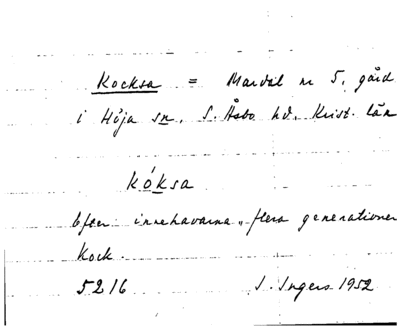 Kocksa = Mardal nr 5, gård
i Höja sn, S. Åsbo hd, Krist. län
kóksa
Efter innehavarna, flera generationer
Kock.
5216 I. Ingers 1952